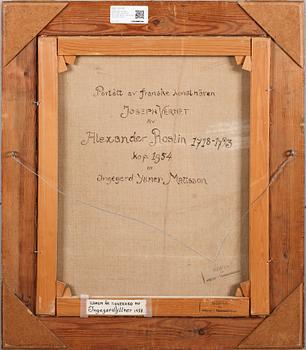 Portätt av franske konstnären
JOSEPH VERNET
AV
Alexander Roslin 1718-1793
kop. 1954
av
Ingegerd Yllner Mattsson
RAMEN ÄR
Ingegerd Yllner 1958